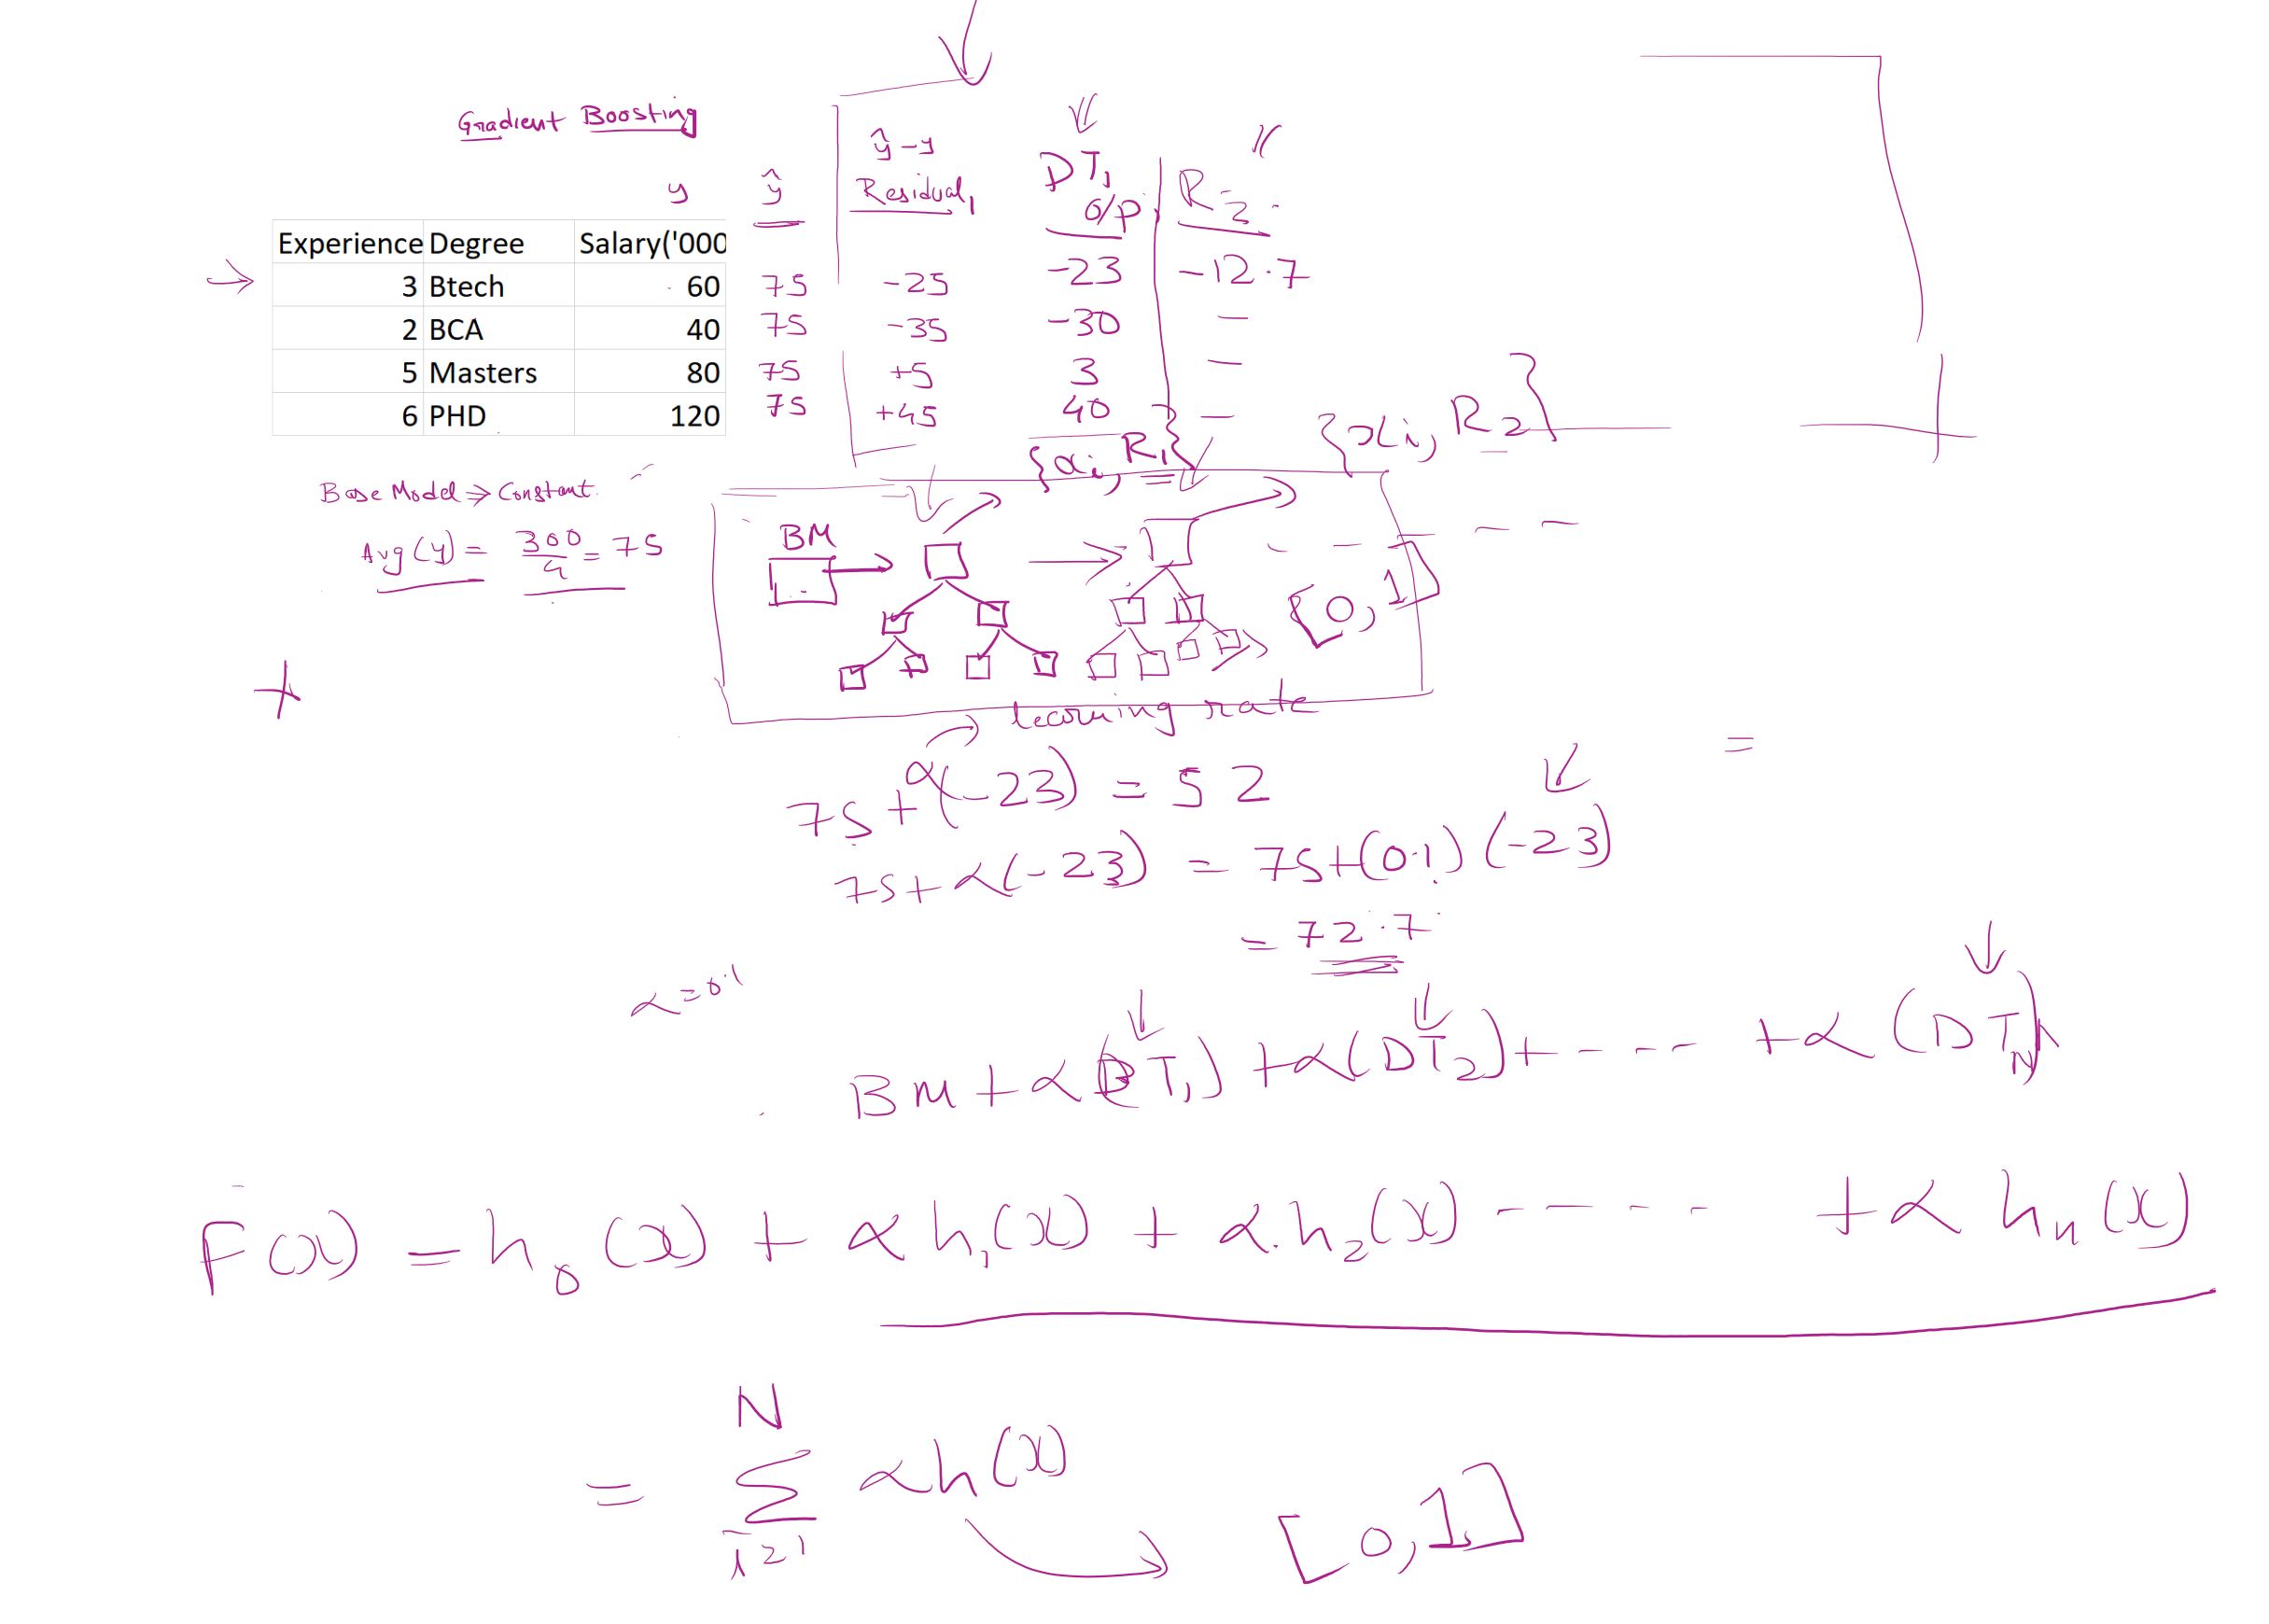 Gradient Boosting
y ŷ ŷ-y Residual1 DT1 o/p R2
Experience Degree Salary('000
3 Btech 60 75 -25 -23 -12.7
2 BCA 40 75 -35 -30 -
5 Masters 80 75 +5 3 -
6 PHD 120 75 +45 40 -
{xi, R1} {xi, R2}
Base Model ⇒ Constant
Avg(y) = 300/4 = 75
BM
[0, 1]
+
learning rate
75 + α(-23) = 52
=
75 + α(-23) = 75 + (0.1)(-23)
= 72.7
α = 0.1
BM + α(DT1) + α(DT2) + - - - - + α(DTN)
F(x) = h0(x) + α h1(x) + α.h2(x) - - - - - + α hn(x)
= N Σ i=1 αh(x) [0, 1]